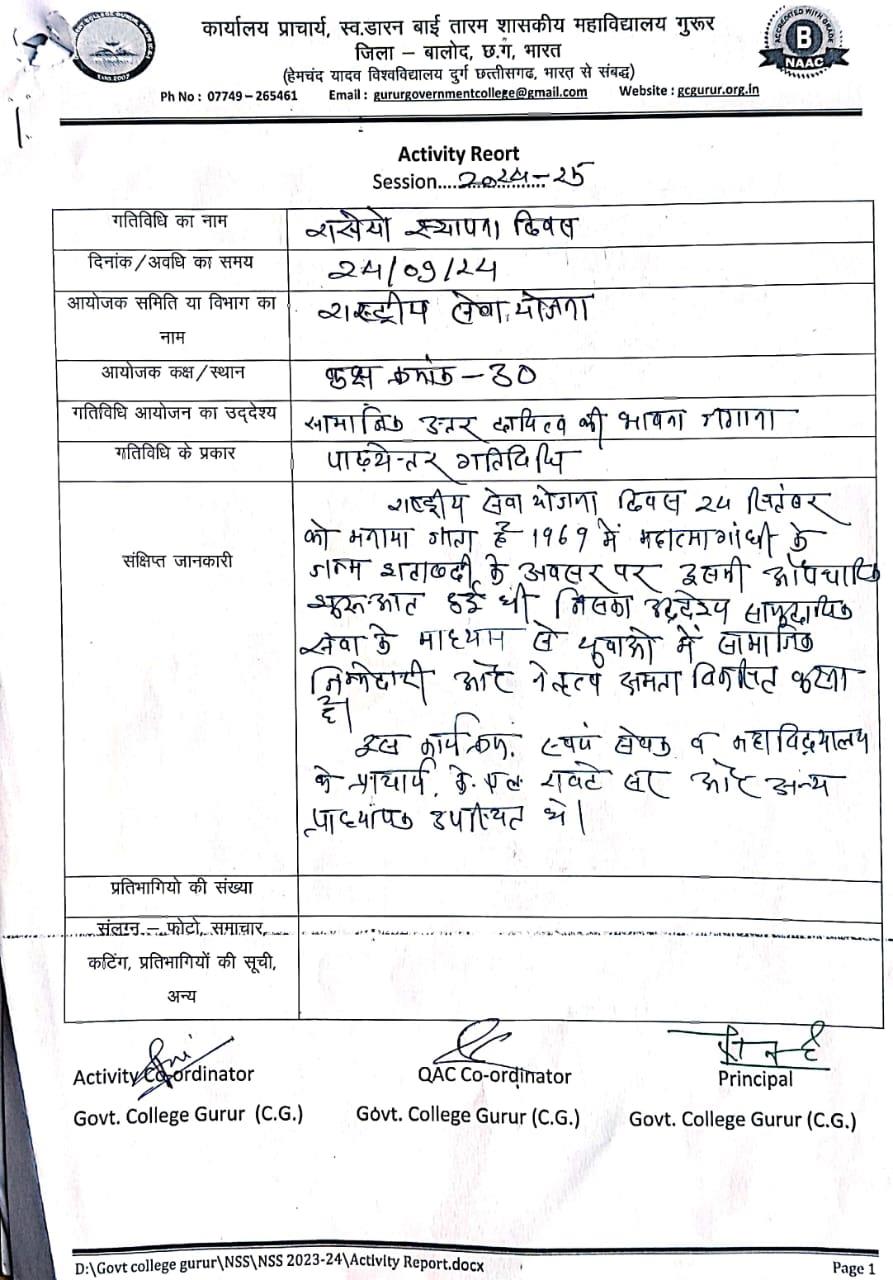 कार्यालय प्राचार्य, स्व.डारन बाई तारम शासकीय महाविद्यालय गुरूर
जिला – बालोद, छ.ग, भारत
(हेमचंद यादव विश्वविद्यालय दुर्ग छत्तीसगढ, भारत से संबद्ध)
Ph No : 07749 – 265461 Email : gururgovernmentcollege@gmail.com Website : gcgurur.org.in
ACCREDITED WITH GRADE
B
NAAC
Activity Reort
Session....2024-25
गतिविधि का नाम रासेयो स्थापना दिवस
दिनांक/अवधि का समय 24/09/24
आयोजक समिति या विभाग का राष्ट्रीय सेवा योजना
नाम
आयोजक कक्ष/स्थान कक्ष क्रमांक – 30
गतिविधि आयोजन का उद्देश्य सामाजिक उत्तर दायित्व की भावना जगाना
गतिविधि के प्रकार पाठ्येत्तर गतिविधि
संक्षिप्त जानकारी
राष्ट्रीय सेवा योजना दिवस 24 सितंबर
को मनाया जाता है 1969 में महात्मा गांधी के
जन्म शताब्दी के अवसर पर इसकी औपचारिक
शुरूआत हुई थी जिसका उद्देश्य सामुदायिक
सेवा के माध्यम से युवाओ में सामाजिक
जिम्मेदारी और नेतृत्व क्षमता विकसित करना
है।
इस कार्यक्रम स्वयं सेवक व महाविद्यालय
के प्राचार्य के. एल. रावटे सर और अन्य
प्राध्यापक उपस्थित थे।
प्रतिभागियो की संख्या
संलग्न – फोटो, समाचार,
कटिंग, प्रतिभागियों की सूची,
अन्य
Activity Co-ordinator QAC Co-ordinator Principal
Govt. College Gurur (C.G.) Govt. College Gurur (C.G.) Govt. College Gurur (C.G.)
D:\Govt college gurur\NSS\NSS 2023-24\Activity Report.docx Page 1